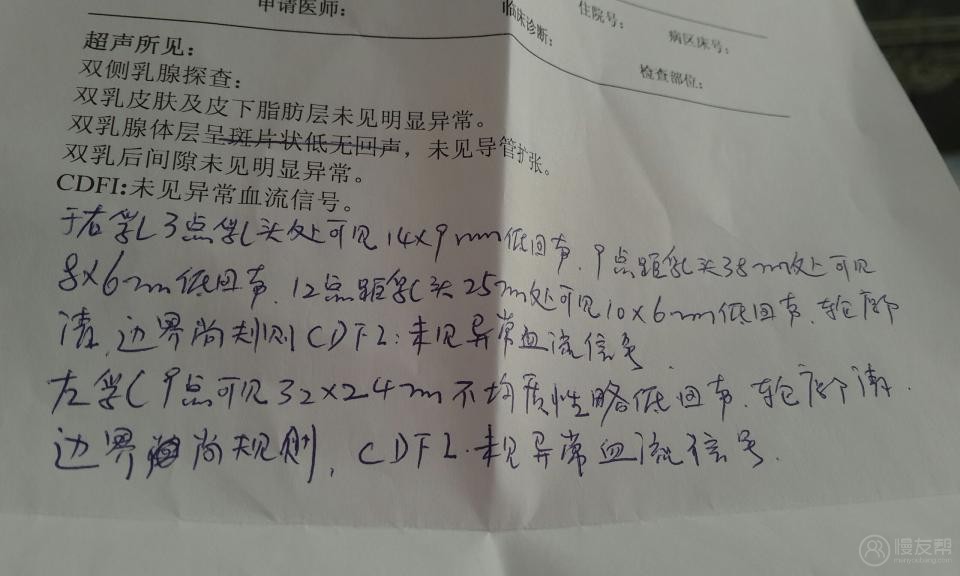 申请医师：
临床诊断：
住院号：
病区床号：
检查部位：
超声所见：
双侧乳腺探查：
双乳皮肤及皮下脂肪层未见明显异常。
双乳腺体层呈斑片状低无回声，未见导管扩张。
双乳后间隙未见明显异常。
CDFI:未见异常血流信号。
于右乳3点乳头处可见14×9mm低回声、9点距乳头38m处可见
8×6m低回声、12点距乳头25m处可见10×6m低回声、轮廓
清、边界尚规则CDFI：未见异常血流信号
左乳9点可见32×24m不均质性略低回声、轮廓清、
边界尚规则，CDFI.未见异常血流信号.
慢友帮